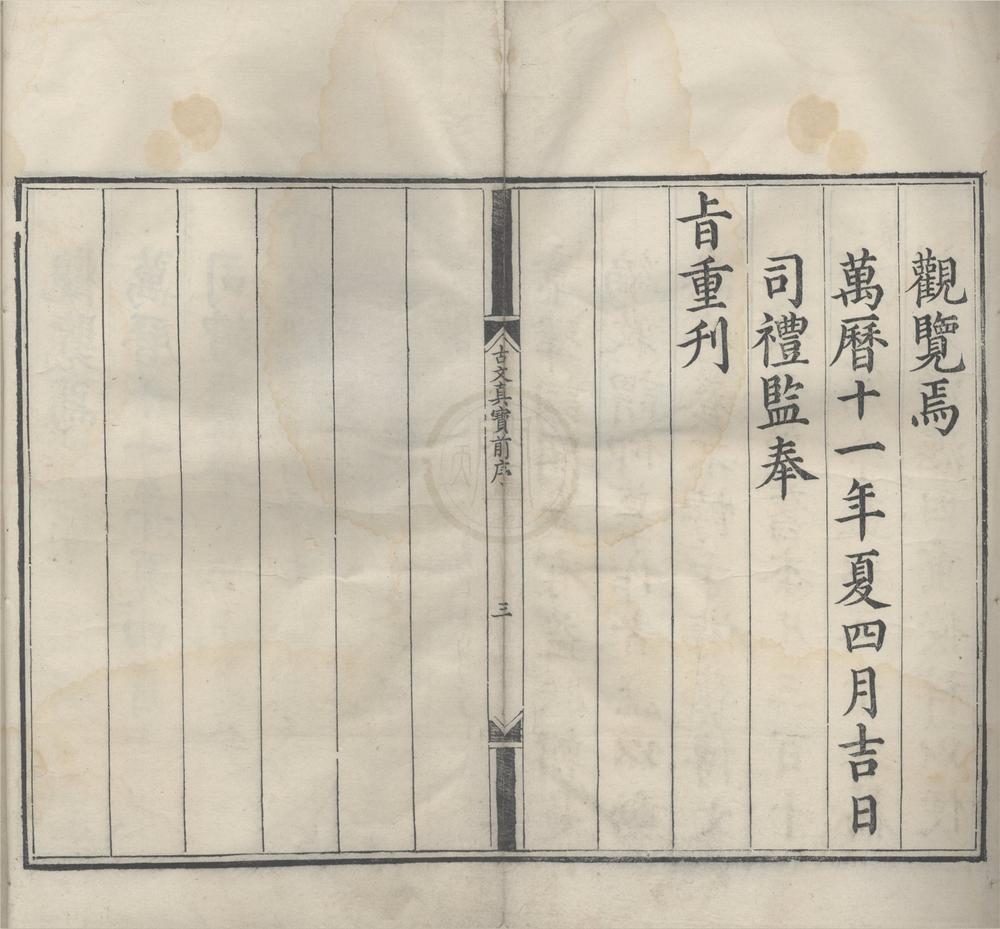 觀覽焉
萬曆十一年夏四月吉日
司禮監奉
旨重刋
古文真寶前序
三